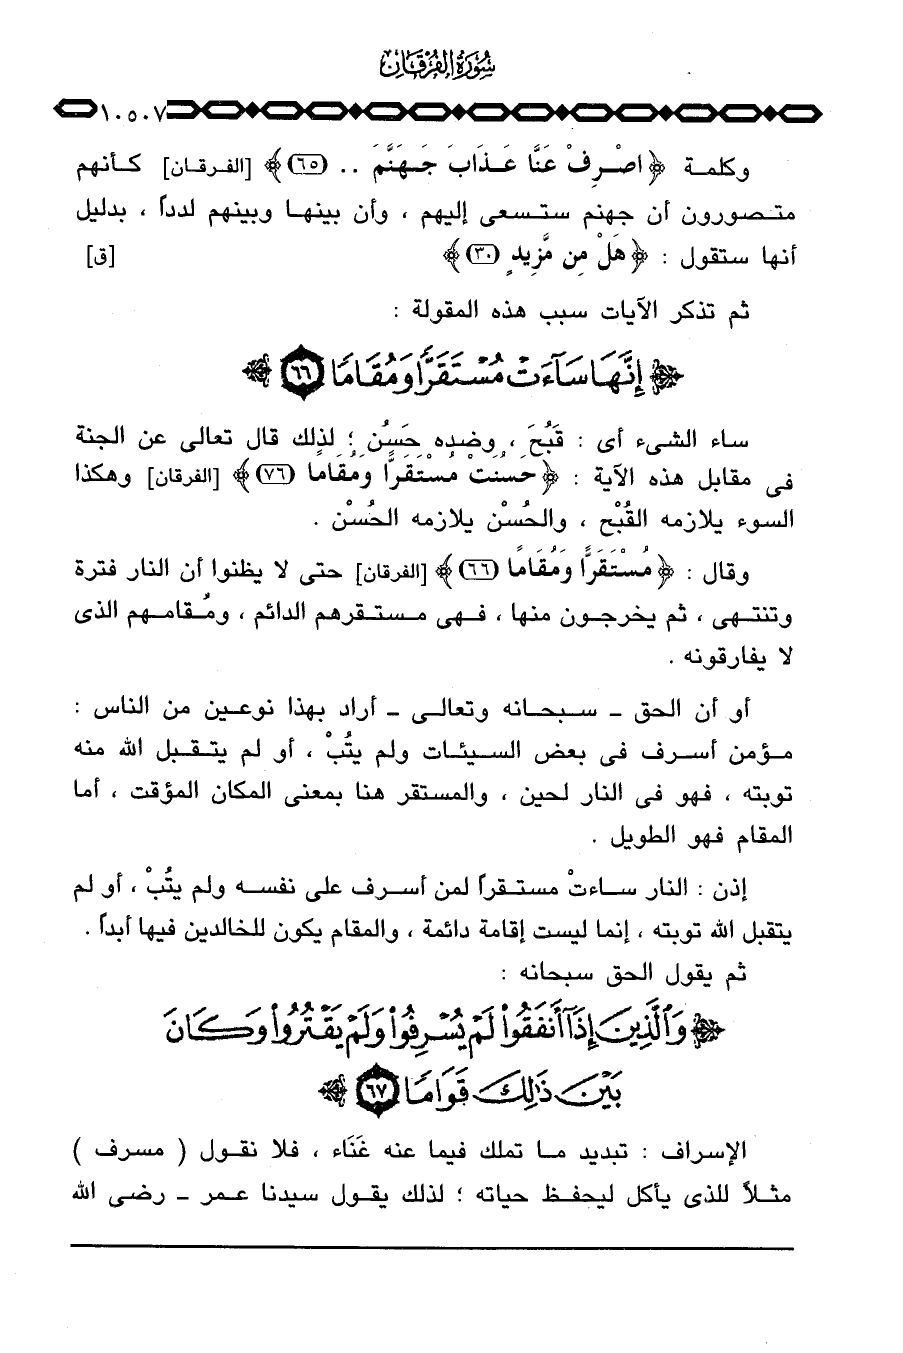 سُورَةُ الفُرْقَانِ
١٠٥٠٧
وكلمة ﴿ اصْرِفْ عَنَّا عَذَابَ جَهَنَّمَ .. (٦٥) ﴾ [الفرقان] كأنهم
متصورون أن جهنم ستسعى إليهم ، وأن بينها وبينهم لدداً ، بدليل
أنها ستقول : ﴿ هَلْ مِن مَّزِيدٍ (٣٠) ﴾ [ق]
ثم تذكر الآيات سبب هذه المقولة :
﴿ إِنَّهَا سَآءَتْ مُسْتَقَرًّا وَمُقَامًا ٦٦ ﴾
ساء الشىء أى : قَبُحَ ، وضده حَسُن ؛ لذلك قال تعالى عن الجنة
فى مقابل هذه الآية : ﴿ حَسُنَتْ مُسْتَقَرًّا وَمُقَامًا (٧٦) ﴾ [الفرقان] وهكذا
السوء يلازمه القُبْح ، والحُسْن يلازمه الحُسْن .
وقال : ﴿ مُسْتَقَرًّا وَمُقَامًا (٦٦) ﴾ [الفرقان] حتى لا يظنوا أن النار فترة
وتنتهى ، ثم يخرجون منها ، فهى مستقرهم الدائم ، ومُقامهم الذى
لا يفارقونه .
أو أن الحق ـ سبحانه وتعالى ـ أراد بهذا نوعين من الناس :
مؤمن أسرف فى بعض السيئات ولم يتُبْ ، أو لم يتقبل الله منه
توبته ، فهو فى النار لحين ، والمستقر هنا بمعنى المكان المؤقت ، أما
المقام فهو الطويل .
إذن : النار ساءتْ مستقراً لمن أسرف على نفسه ولم يتُبْ ، أو لم
يتقبل الله توبته ، إنما ليست إقامة دائمة ، والمقام يكون للخالدين فيها أبداً .
ثم يقول الحق سبحانه :
﴿ وَٱلَّذِينَ إِذَآ أَنفَقُوا۟ لَمْ يُسْرِفُوا۟ وَلَمْ يَقْتُرُوا۟ وَكَانَ
بَيْنَ ذَٰلِكَ قَوَامًا ٦٧ ﴾
الإسراف : تبديد ما تملك فيما عنه غَنَاء ، فلا نقول ( مسرف )
مثلاً للذى يأكل ليحفظ حياته ؛ لذلك يقول سيدنا عمر ـ رضى الله